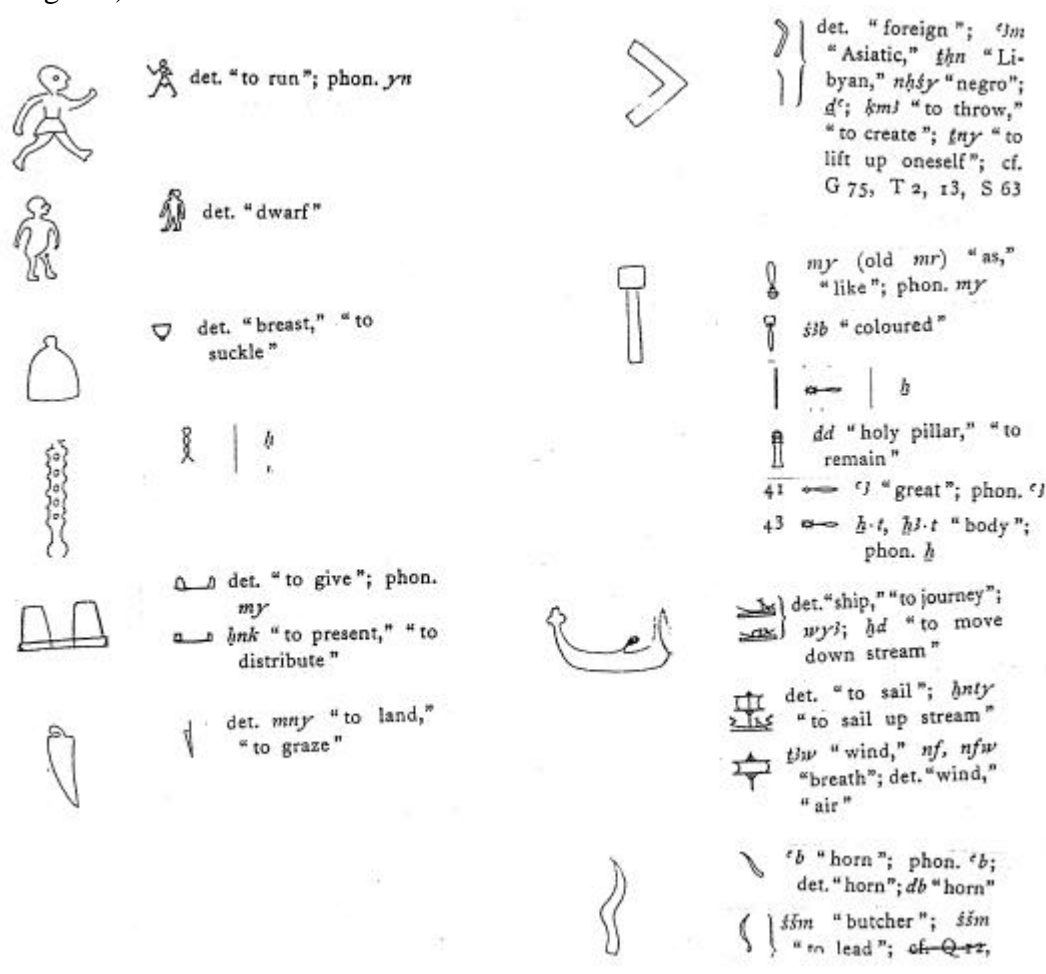 det. “to run”; phon. yn
det. “dwarf”
det. “breast,” “to
suckle”
ḥ
det. “to give”; phon.
my
ḥnk “to present,” “to
distribute”
det. mny “to land,”
“to graze”
det. “foreign”; ꜥꜣm
“Asiatic,” ṯḥn “Li-
byan,” nḥśy “negro”;
ḏꜥ; ḳmꜣ “to throw,”
“to create”; ṯny “to
lift up oneself”; cf.
G 75, T 2, 13, S 63
my (old mr) “as,”
“like”; phon. my
śꜣb “coloured”
ẖ
dd “holy pillar,” “to
remain”
41 ꜥꜣ “great”; phon. ꜥꜣ
43 ẖ·t, ẖꜣ·t “body”;
phon. ẖ
det. “ship,” “to journey”;
wyꜣ; ḫd “to move
down stream”
det. “to sail”; ḫnty
“to sail up stream”
ṯꜣw “wind,” nf, nfw
“breath”; det. “wind,”
“air”
ꜥb “horn”; phon. ꜥb;
det. “horn”; db “horn”
śšm “butcher”; śšm
“to lead”; cf. Q 12,